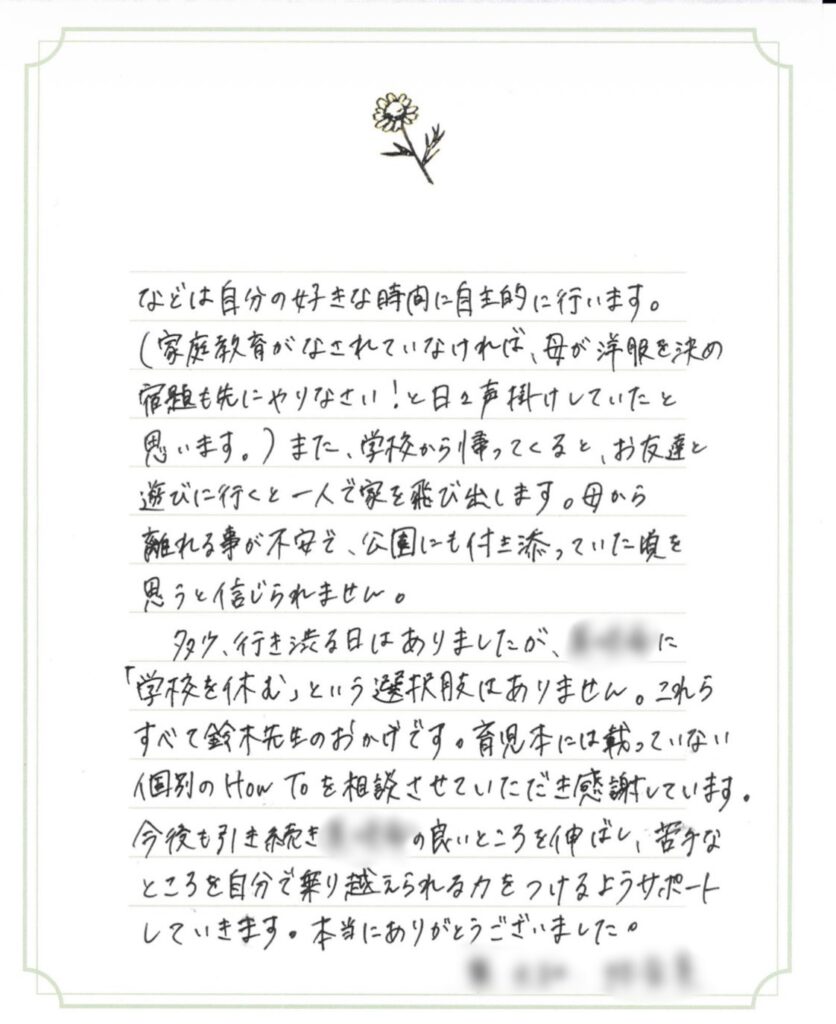 などは自分の好きな時間に自主的に行います。
(家庭教育がなされていなければ、母が洋服を決め
宿題も先にやりなさい!と日々声掛けしていたと
思います。)また、学校から帰ってくると、お友達と
遊びに行くと一人で家を飛び出します。母から
離れる事が不安で、公園にも付き添っていた頃を
思うと信じられません。
多少、行き渋る日はありましたが、に
「学校を休む」という選択肢はありません。これら
すべて鈴木先生のおかげです。育児本には載っていない
個別のHow Toを相談させていただき感謝しています。
今後も引き続きの良いところを伸ばし、苦手な
ところを自分で乗り越えられる力をつけるようサポート
していきます。本当にありがとうございました。